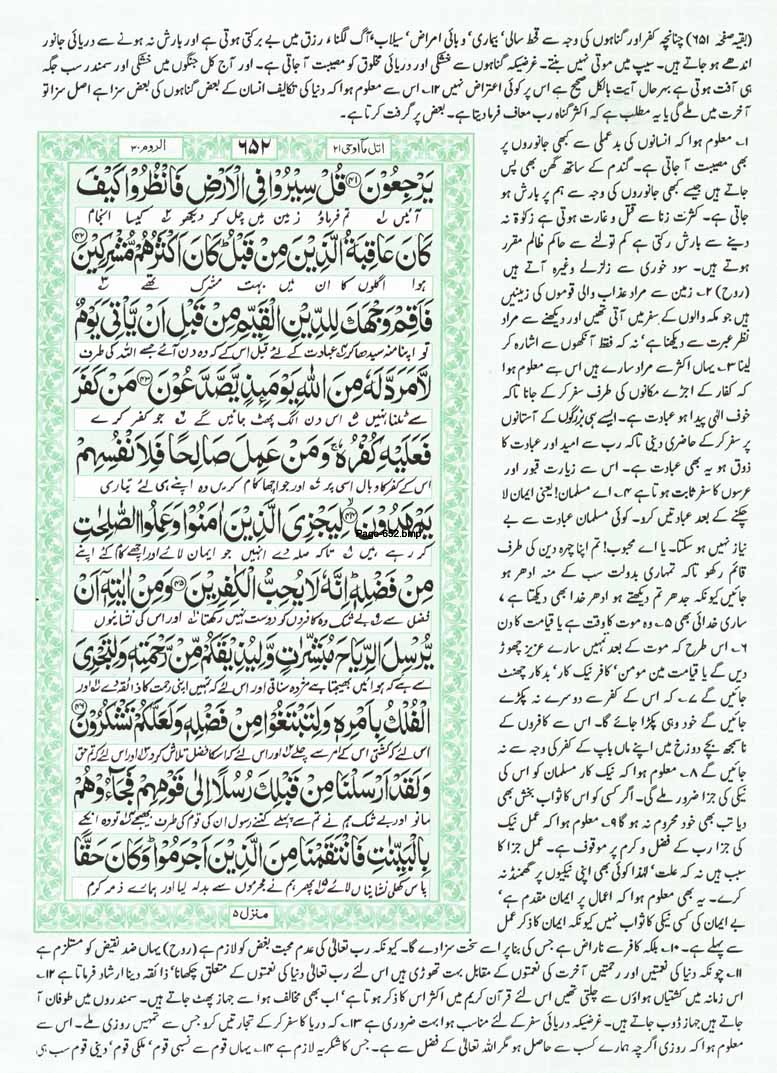 (بقیہ صفحہ ۶۵۱) چنانچہ کفر اور گناہوں کی وجہ سے قحط سالی، بیماری، وبائی امراض، سیلاب، آگ لگنا، رزق میں بے برکتی ہوتی ہے اور بارش نہ ہونے سے دریائی جانور
اندھے ہو جاتے ہیں۔ سیپ میں موتی نہیں بنتے۔ غرضیکہ گناہوں سے خشکی اور دریائی مخلوق کو مصیبت آ جاتی ہے۔ اور آج کل جنگوں میں خشکی اور سمندر سب جگہ
ہی آفت ہوتی ہے بہرحال آیت بالکل صحیح ہے اس پر کوئی اعتراض نہیں ۱۲۔ اس سے معلوم ہوا کہ دنیا کی تکالیف انسان کے بعض گناہوں کی بعض سزا ہے اصل سزا تو
آخرت میں ملے گی یا یہ مطلب ہے کہ اکثر گناہ رب معاف فرما دیتا ہے۔ بعض پر گرفت کرتا ہے۔
۱۔ معلوم ہوا کہ انسانوں کی بدعملی سے کبھی جانوروں پر
بھی مصیبت آ جاتی ہے۔ گندم کے ساتھ گھن بھی پس
جاتے ہیں جیسے کبھی جانوروں کی وجہ سے ہم پر بارش ہو
جاتی ہے۔ کثرت زنا سے قتل و غارت ہوتی ہے زکوٰۃ نہ
دینے سے بارش رکتی ہے کم تولنے سے حاکم ظالم مقرر
ہوتے ہیں۔ سود خوری سے زلزلے وغیرہ آتے ہیں
(روح) ۲۔ زمین سے مراد عذاب والی قوموں کی زمینیں
ہیں جو مکہ والوں کے سفر میں آتی تھیں اور دیکھنے سے مراد
نظر عبرت سے دیکھنا ہے، نہ کہ فقط آنکھوں سے اشارہ کر
لینا ۳۔ یہاں اکثر سے مراد سارے ہیں اس سے معلوم ہوا
کہ کفار کے اجڑے مکانوں کی طرف سفر کر کے جانا تاکہ
خوف الٰہی پیدا ہو عبادت ہے۔ ایسے ہی بزرگوں کے آستانوں
پر سفر کر کے حاضری دینی تاکہ رب سے امید اور عبادت کا
ذوق ہو یہ بھی عبادت ہے۔ اس سے زیارت قبور اور
عرسوں کا سفر ثابت ہوتا ہے ۴۔ اے مسلمان! یعنی ایمان لا
چکنے کے بعد عبادتیں کرو۔ کوئی مسلمان عبادت سے بے
نیاز نہیں ہو سکتا۔ یا اے محبوب! تم اپنا چہرہ دین کی طرف
قائم رکھو تاکہ تمہاری بدولت سب کے منہ ادھر ہو
جائیں کیونکہ جدھر تم دیکھتے ہو ادھر خدا بھی دیکھتا ہے
ساری خدائی بھی ۵۔ وہ موت کا وقت ہے یا قیامت کا دن
۶۔ اس طرح کہ موت کے بعد نہیں سارے عزیز چھوڑ
دیں گے یا قیامت میں مومن، کافر نیک کار، بدکار چھنٹ
جائیں گے ۷۔ کہ اس کے کفر سے دوسرے نہ پکڑے
جائیں گے خود وہی پکڑا جائے گا۔ اس سے کافروں کے
ناسمجھ بچے دوزخ میں اپنے ماں باپ کے کفر کی وجہ سے نہ
جائیں گے ۸۔ معلوم ہوا کہ نیک کار مسلمان کو اس کی
نیکی کی جزا ضرور ملے گی۔ اگر کسی کو اس کا ثواب بخش بھی
دیا تب بھی خود محروم نہ ہو گا ۹۔ معلوم ہوا کہ عمل نیک
کی جزا رب کے فضل و کرم پر موقوف ہے۔ عمل جزا کا
سبب ہیں نہ کہ علت، لہٰذا کوئی بھی اپنی نیکیوں پر گھمنڈ نہ
کرے۔ یہ بھی معلوم ہوا کہ اعمال پر ایمان مقدم ہے،
بے ایمان کی کسی نیکی کا ثواب نہیں کیونکہ ایمان کا ذکر عمل
اتل ما اوحی ۲۱
۶۵۲
الروم ۳۰
يَرْجِعُوْنَ ۴۱ قُلْ سِيْرُوْا فِي الْاَرْضِ فَانْظُرُوْا كَيْفَ
تم فرماؤ زمین میں چل کر دیکھو کیسا انجام
كَانَ عَاقِبَةُ الَّذِيْنَ مِنْ قَبْلُ كَانَ اَكْثَرُهُمْ مُّشْرِكِيْنَ ۴۲
ہوا اگلوں کا ان میں بہت مشرک تھے
فَاَقِمْ وَجْهَكَ لِلدِّيْنِ الْقَيِّمِ مِنْ قَبْلِ اَنْ يَّاْتِيَ يَوْمٌ
تو اپنا منہ سیدھا کر عبادت کے لئے قبل اس کے کہ وہ دن آئے جسے اللہ کی طرف
لَّا مَرَدَّ لَهٗ مِنَ اللّٰهِ يَوْمَىِٕذٍ يَّصَّدَّعُوْنَ ۴۳ مَنْ كَفَرَ
سے ٹلنا نہیں اس دن الگ پھٹ جائیں گے جو کفر کرے
فَعَلَيْهِ كُفْرُهٗ وَمَنْ عَمِلَ صَالِحًا فَلِاَنْفُسِهِمْ
اس کے کفر کا وبال اسی پر اور جو اچھا کام کریں وہ اپنے ہی لئے تیاری
يَمْهَدُوْنَ ۴۴ لِيَجْزِيَ الَّذِيْنَ اٰمَنُوْا وَعَمِلُوا الصّٰلِحٰتِ
کر رہے ہیں تاکہ صلہ دے انہیں جو ایمان لائے اور اچھے کام کئے اپنے
Page-652.bmp
مِنْ فَضْلِهٖ اِنَّهٗ لَا يُحِبُّ الْكٰفِرِيْنَ ۴۵ وَمِنْ اٰيٰتِهٖٓ اَنْ
فضل سے بے شک وہ کافروں کو دوست نہیں رکھتا اور اس کی نشانیوں
يُّرْسِلَ الرِّيَاحَ مُبَشِّرٰتٍ وَّلِيُذِيْقَكُمْ مِّنْ رَّحْمَتِهٖ وَلِتَجْرِيَ
سے ہے کہ ہوائیں بھیجتا ہے مژدہ سناتی اور اس لئے کہ تمہیں اپنی رحمت کا ذائقہ دے اور
الْفُلْكُ بِاَمْرِهٖ وَلِتَبْتَغُوْا مِنْ فَضْلِهٖ وَلَعَلَّكُمْ تَشْكُرُوْنَ ۴۶
اس لئے کہ کشتی اس کے امر سے چلے اور اس لئے کہ اس کا فضل تلاش کرو اور اس لئے کہ تم حق
وَلَقَدْ اَرْسَلْنَا مِنْ قَبْلِكَ رُسُلًا اِلٰى قَوْمِهِمْ فَجَآءُوْهُمْ
مانو اور بے شک ہم نے تم سے پہلے کتنے رسول ان کی قوم کی طرف بھیجے تو وہ ان کے
بِالْبَيِّنٰتِ فَانْتَقَمْنَا مِنَ الَّذِيْنَ اَجْرَمُوْا وَكَانَ حَقًّا
پاس کھلی نشانیاں لائے پھر ہم نے مجرموں سے بدلہ لیا اور ہمارے ذمہ کرم
منزل ۵
سے پہلے ہے۔ ۱۰۔ بلکہ کافر سے ناراض ہے جس کی بنا پر اسے سخت سزا دے گا۔ کیونکہ رب تعالیٰ کی عدم محبت بغض کو لازم ہے (روح) یہاں ضد نقیض کو مستلزم ہے
۱۱۔ چونکہ دنیا کی نعمتیں اور رحمتیں آخرت کی نعمتوں کے مقابل بہت تھوڑی ہیں اس لئے رب تعالیٰ دنیا کی نعمتوں کے متعلق چکھانا، ذائقہ دینا ارشاد فرماتا ہے ۱۲۔
اس زمانہ میں کشتیاں ہواؤں سے چلتی تھیں اس لئے قرآن کریم میں اکثر اس کا ذکر ہوتا ہے، اب بھی مخالف ہوا سے جہاز پھٹ جاتے ہیں۔ سمندروں میں طوفان آ
جاتے ہیں جہاز ڈوب جاتے ہیں۔ غرضیکہ دریائی سفر کے لئے مناسب ہوا بہت ضروری ہے ۱۳۔ کہ دریا کا سفر کر کے تجارتیں کرو جس سے تمہیں روزی ملے۔ اس سے
معلوم ہوا کہ روزی اگرچہ ہمارے کسب سے حاصل ہو مگر اللہ تعالیٰ کے فضل سے ہے۔ جس کا شکریہ لازم ہے ۱۴۔ یہاں قوم سے نسبی قوم، ملکی قوم، دینی قوم سب ہی